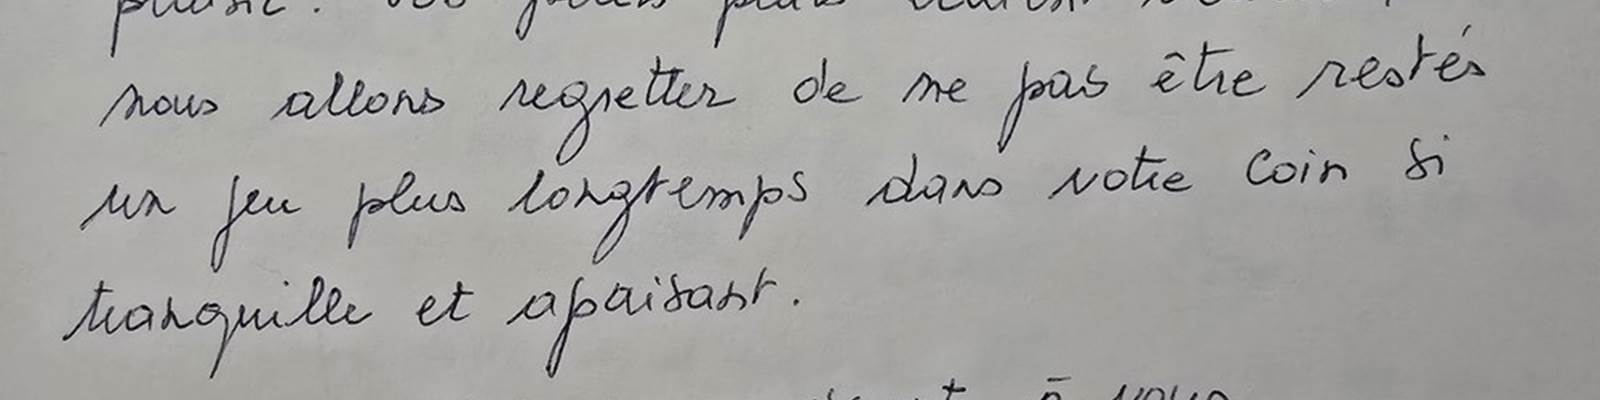 nous allons regretter de ne pas être restés
un peu plus longtemps dans votre coin si
tranquille et apaisant.
à vous